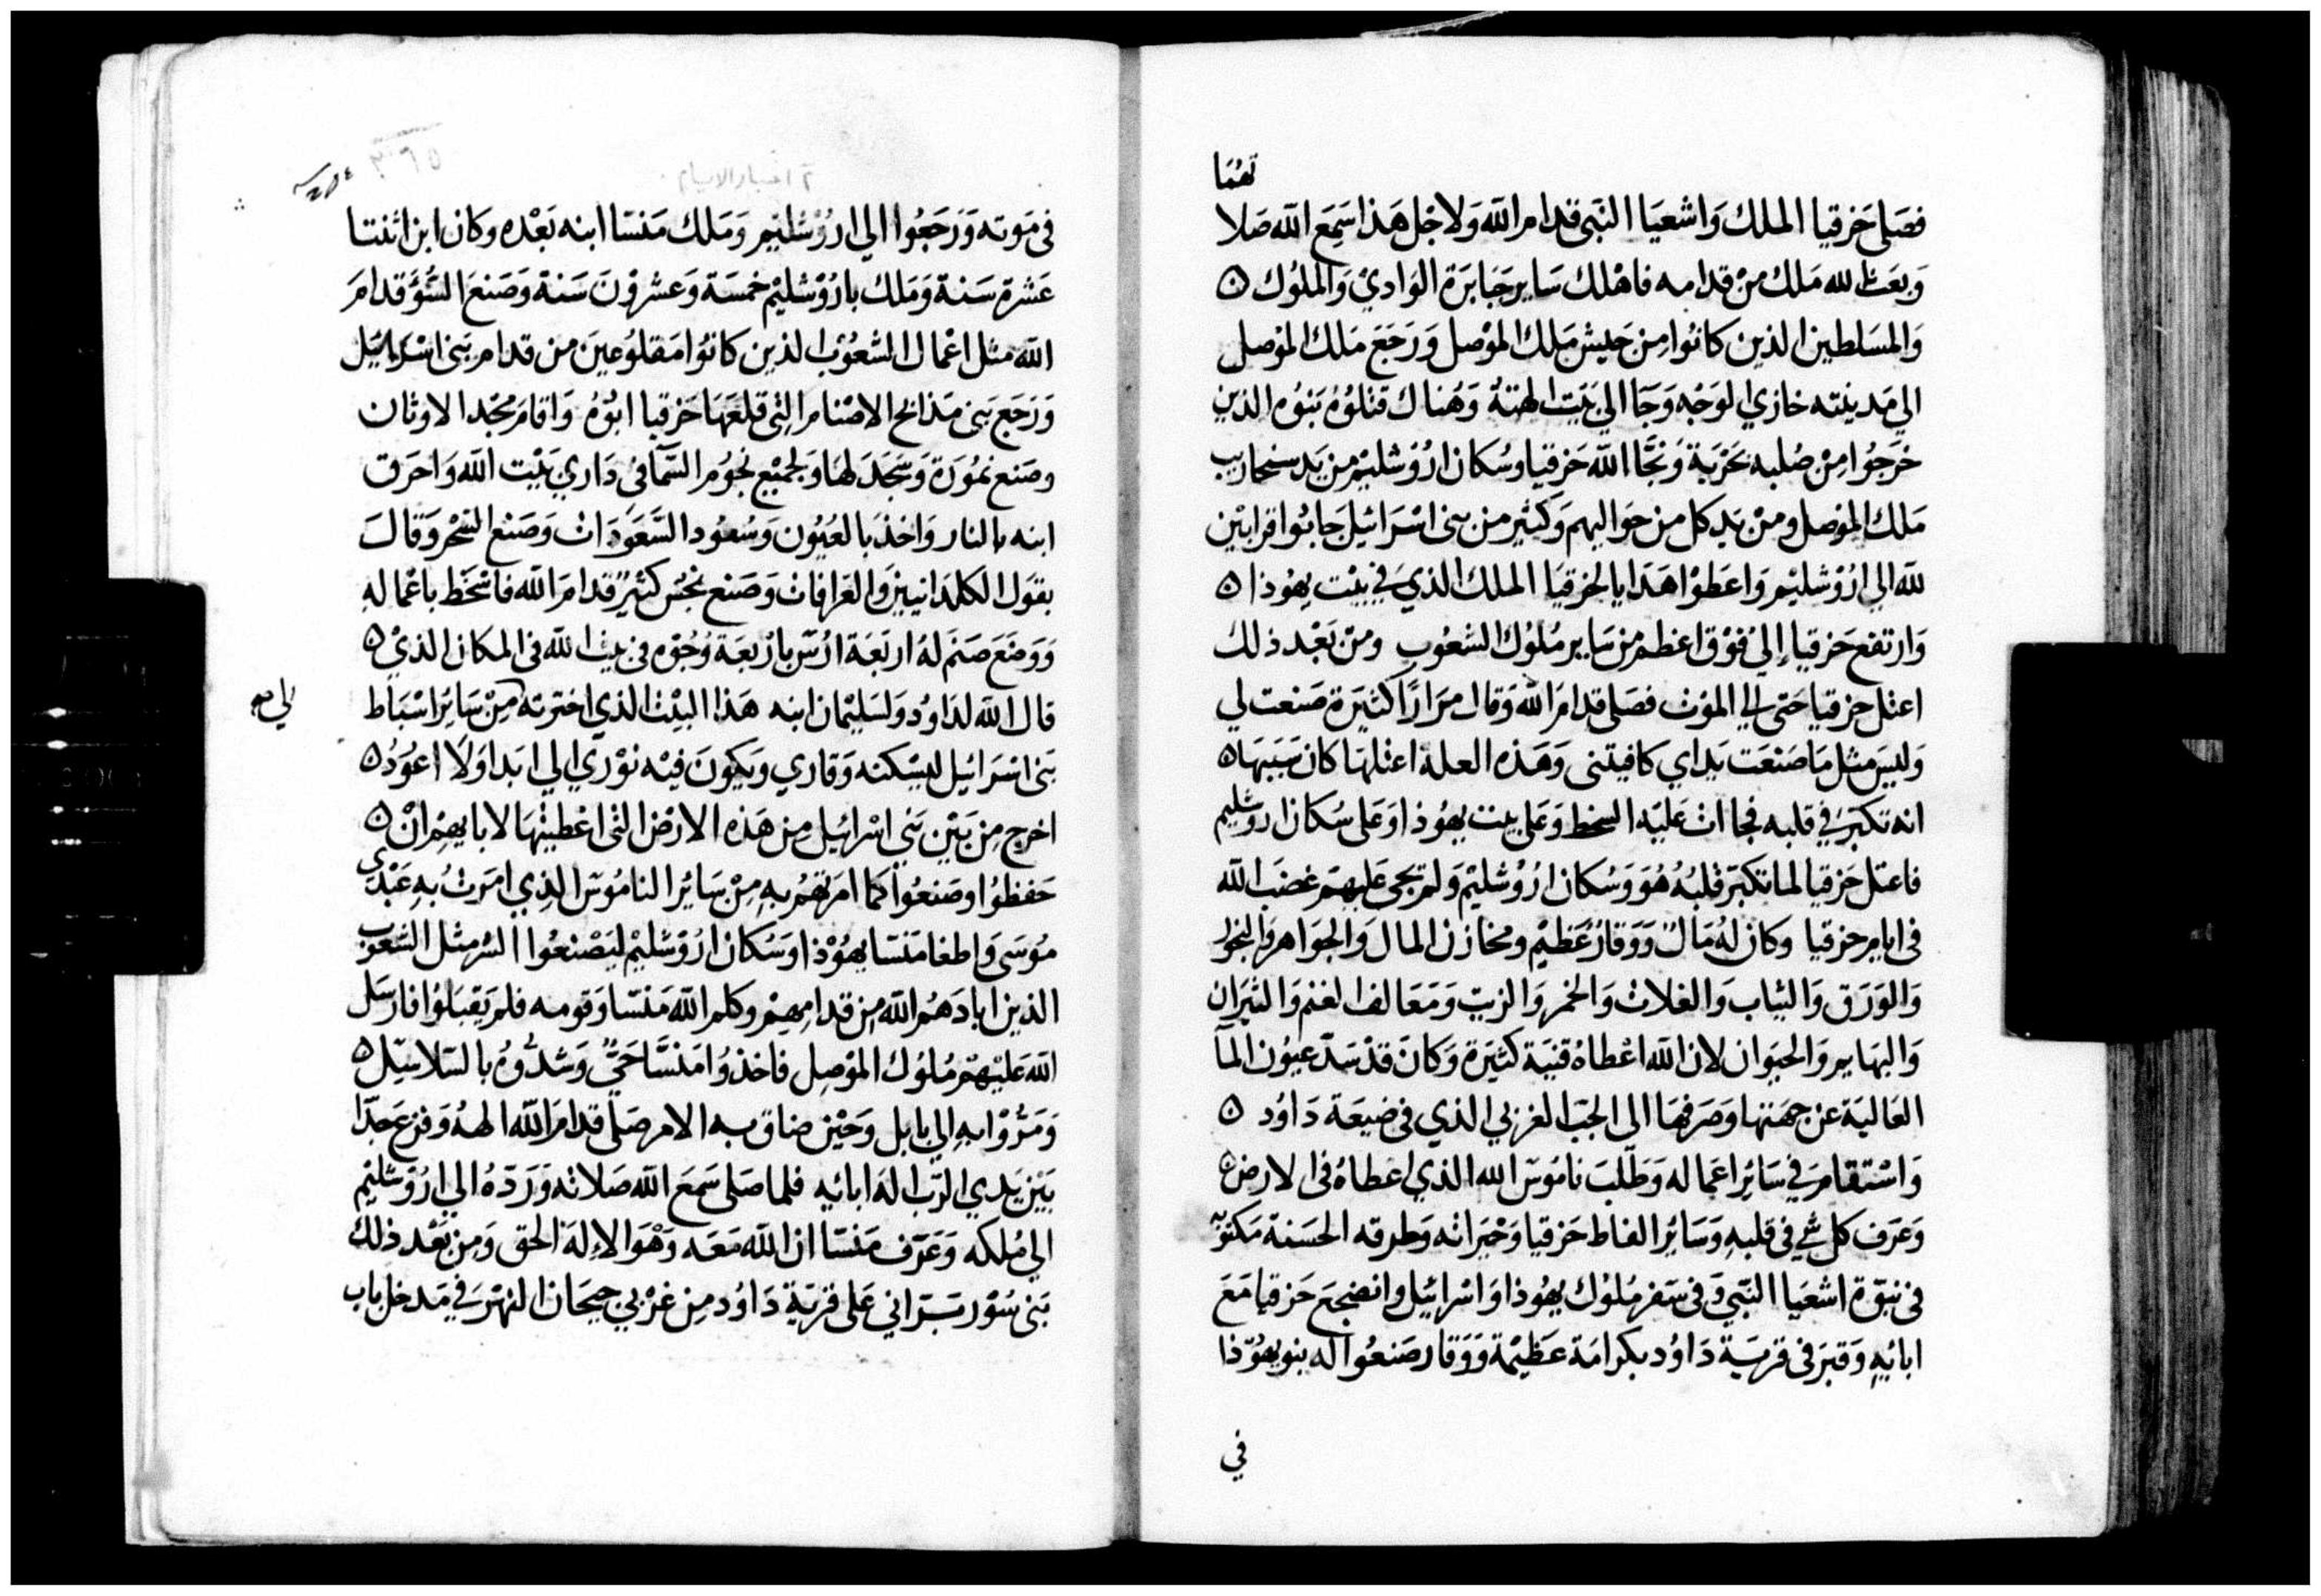 تهما
فصلى حزقيا الملك وَاشعيَا النبى قدام الله وَلاجل هَذا سَمِعَ الله صَلا
وَبعَث الله مَلك مِنْ قدامه فاهْلك سَاير جَبابَرة الوَاديْ وَالملوُك ۞
وَالمسَلطين الذين كانوُا مِن جَيش مَلك الموْصل وَرَجَعَ مَلك الموْصل
الي مَدينته خازي الوَجْه وَجَا الي بَيت الهتهُ وَهُناك قتلوُهُ بَنوُه الذين
خرَجوُا مِنْ صُلبه بحَرْبَة وَنجَّا الله حَزقيا وسُكان ارُوْشليْم من يَد سنحاريب
مَلك الموْصل ومنْ يَد كل من حوَاليهم وَكثير من بني اسْرَائيل جَابوُا قرابيْن
لله الي ارُوْشليْم وَاعطوْا هَدَايا لحزقيَا الملك الذيَ في بيْت يهوُذا ۞
وَارتفع حَزقيا إلىٰ فوْق اعظم من سَاير مُلوُك الشعُوب ومنْ بَعْد ذلك
اعتل حزقيا حَتى الي الموْت فصَلى قدامَ الله وَقال مرَارًا كثيَرة صَنعت لي
وَليسَ مثل مَا صَنعَت يَداي كافيتنى وَهَذه العلة اعتلهَا كان سَبَبهَا ۞
انه تكبرَ في قلبه فجاات عَليْه السخط وَعَلى بيت يهوُذا وَعَلى سُكان اروشليم
فاعتل حَزقيا لما تكبرَ قلبُهُ هُوَ وَسُكان ارُوْشليْم وَلم تجى عَليهمْ غضَب الله
فى ايام حزقيا وكان لهُ مَالٌ وَوَقارٌ عَظيْم ومخازن المال وَالجوَاهر وَالبخور
وَالوَرَق وَالثياب وَالغلات وَالخمر وَالزيت وَمَعَالف الغنم وَالثيرَان
وَالبهايم وَالحيوَان لان الله اعْطاهُ قنيَة كثيَرة وَكانَ قدْ سَدّ عيوُن المآ
العَاليَة عن جهَتها وصَرفهَا الى الجبّ الغربي الذي فى ضيعَة دَاوُد ۞
وَاسْتقامَ في سَائر اعمَاله وَطلبَ ناموُسَ الله الذي اعطاهُ فى الارض ۞
وَعَرَف كل شي فى قلبهِ وَسَائر الفاظ حَزقيا وَخيرَاته وَطرقه الحسَنة مَكتوبَه
فى نبوَّة اشعيَا النبي وَفى سَفر مُلوُك يهوُذا وَاسْرائيل وانضجعَ حَزقيا مَعَ
ابائِهِ وَقبرَ فى قريَة دَاوُد بكرامَة عَظيْمة وَوَقار صَنعُوا له بنو يهوُذا
في
٢ اخبار الايام
٣٦٥
فى مَوته وَرَجَعُوا الي ارُوْشليْم وَمَلك مَنسَا ابنه بَعْده وكان ابن اثنتا
عَشرة سَنة وَمَلك بارُوْشليْم خمسَة وَعشروْنَ سَنة وَصَنعَ السُّوَء قدامَ
الله مثل اعْمال الشعُوْب الذين كانوُا مَقلوُعينَ من قدام بَني اسْرَائيل
وَرَجَعَ بَنى مَذابح الاصْنام التي قلعَهَا حَزقيا ابوُهُ وَاقامَ مجد الاوثان
وصَنع نموُرَة وَسَجَدَ لها وَلجميْع نجوُم السَّمآ فى دَاري بَيْت الله وَاحرَق
ابنه بالنار وَاخذ بالعيُون وَسُعُود السَّعَوَدَات وَصَنع السّحْر وَقالَ
بقوَل الكلدَانيينَ وَالعَرافات وَصَنع نجُس كثيْرٌ قدامَ الله فاسْخط باعْمالهِ
وَوَضعَ صَنم لهُ ارْبَعَة ارُسّ بارْبعَة وُجوُه فى بيت الله فى المكان الذيْ ۞
قال الله لدَاوُد وَلسَليْمان ابنه هَذا البيْت الذي اخترته مِنْ سَائر اسْبَاط
الي
بَنى اسْرَائيل ليسْكنه وَقاري وَيكوُنَ فيْه نوْري الي ابَدا وَلَا اعوُدُ ۞
اخرج مِن بَيْن بَني اسْرائيل مِن هَذه الارْض التى اعْطيتهَا لابايهمْ انْ ۞
حَفظوُا وصَنعُوا كما امَرتهُم بهِ مِنْ سَائر الناموُس الذِي امَرتُ بهِ عَبْدي
موُسَى وَاطغا مَنسَا يهوُذا وَسُكان ارُوْشليْم ليَصْنعُوا الشر مثل الشعُوب
الذين ابادَهُم الله مِن قدامهمْ وكلم الله مَنسّا وَقومه فلم يَقبَلوُا فارسَل
الله عَليْهمْ مُلوُك الموْصِل فاخذوُا مَنسَّا حَيٌّ وَشدُّوهُ بالسّلاسِل ۞
وَمَرُّوْا بهِ الي بابل وَحيْن ضاق به الامر صَلّى قدامَ الله الههُ وَفزع جدًا
بيْن يَدي الرّب اله ابائهِ فلما صَلى سَمعَ الله صَلاته وَرَدّهُ الي ارُوْشليْم
الي مُلكه وَعَرَف مَنسّا ان الله مَعَه وَهْوَ الإلَه الحق وَمِن بَعْد ذلك
بَنى سُوْر بَرّاني عَلى قريَة دَاوُد مِن غرْبي جيحَان النهْر في مَدخل باب